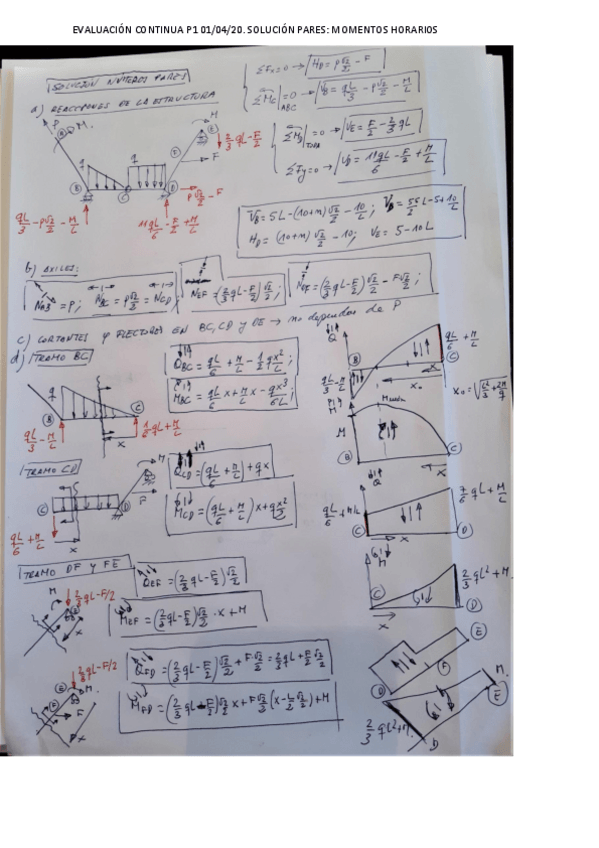 EVALUACIÓN CONTINUA P1 01/04/20. SOLUCIÓN PARES: MOMENTOS HORARIOS
SOLUCION NÚMEROS PARES
a) REACCIONES DE LA ESTRUCTURA
ΣFx=0 → H_D = P√2/2 - F
ΣM_C|ABC = 0 → V_B = qL/3 - P√2/2 - M/L
= 0 → V_E = F/2 - 2/3 qL
ΣFy=0 → V_D = 11qL/6 - F/2 + M/L
2/3 qL - F/2
P√2/2 - F
qL/3 - P√2/2 - M/L
11qL/6 - F/2 + M/L
V_B = 5L - (10+n)√2/2 - 10/L ; V_D = 55/2 L - 5 + 10/L
H_D = (10+n)√2/2 - 10 ; V_E = 5 - 10L
b) AXILES:
N_AB = P ; N_BC = P√2/2 = N_CD ; N_EF = (2/3 qL - F/2)√2/2 ; N_DF = (2/3 qL - F/2)√2/2 - F√2/2 ;
c) CORTANTES Y FLECTORES EN BC, CD y DE → no dependen de P
d) TRAMO BC
Q_BC = qL/6 + M/L - 1/2 qx²/L ;
M_BC = qL/6 x + M/L x - qx³/6L ;
qL/3 - M/L
1/6 qL + M/L
qL/6 + M/L
qL/3 - M/L
x₀ = √(L²/3 + 2M/q)
TRAMO CD
Q_CD = (qL/6 + M/L) + qx
M_CD = (qL/6 + M/L) x + qx²/2
qL/6 + M/L
qL/6 + M/L
7/6 qL + M/L
2/3 qL² + M
TRAMO DF Y FE
2/3 qL - F/2
Q_EF = (2/3 qL - F/2)√2/2
M_EF = (2/3 qL - F/2)√2/2 · x + M
2/3 qL - F/2
Q_FD = (2/3 qL - F/2)√2/2 + F√2/2 = 2/3 qL + F/2 √2/2
M_FD = (2/3 qL - F/2)√2/2 x + F√2/2 (x - L/2 √2/2) + M
2/3 qL² + M